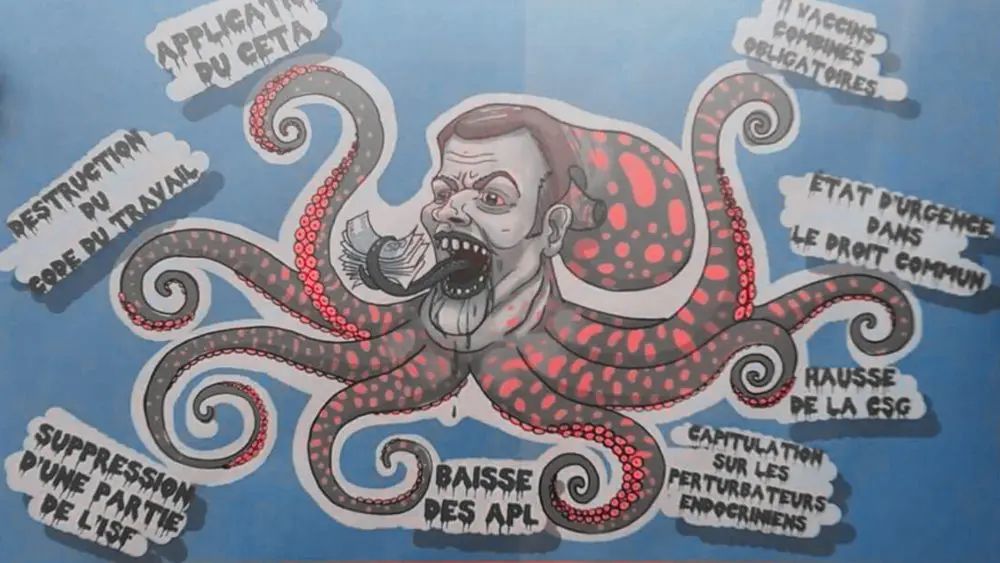 APPLICATION
DU CETA
11 VACCINS
COMBINÉS
OBLIGATOIRES
DESTRUCTION
DU
CODE DU TRAVAIL
ÉTAT D'URGENCE
DANS
LE DROIT COMMUN
HAUSSE
DE LA CSG
SUPPRESSION
D'UNE PARTIE
DE L'ISF
BAISSE
DES APL
CAPITULATION
SUR LES
PERTURBATEURS
ENDOCRINIENS